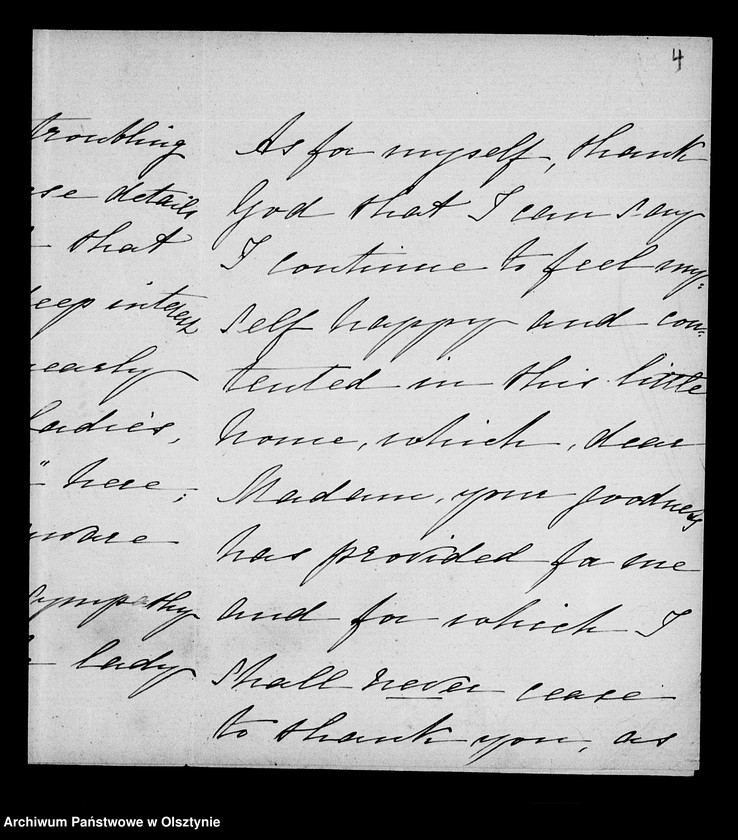 4
troubling
se details
that
eep interest
early
Ladies,
" here;
ware
sympathy
lady
As for myself, thank
God that I can say
I continue to feel my:
self happy and con:
tented in this little
home, which, dear
Madam, your goodness
has provided for me
and for which I
shall never cease
to thank you, as
Archiwum Państwowe w Olsztynie